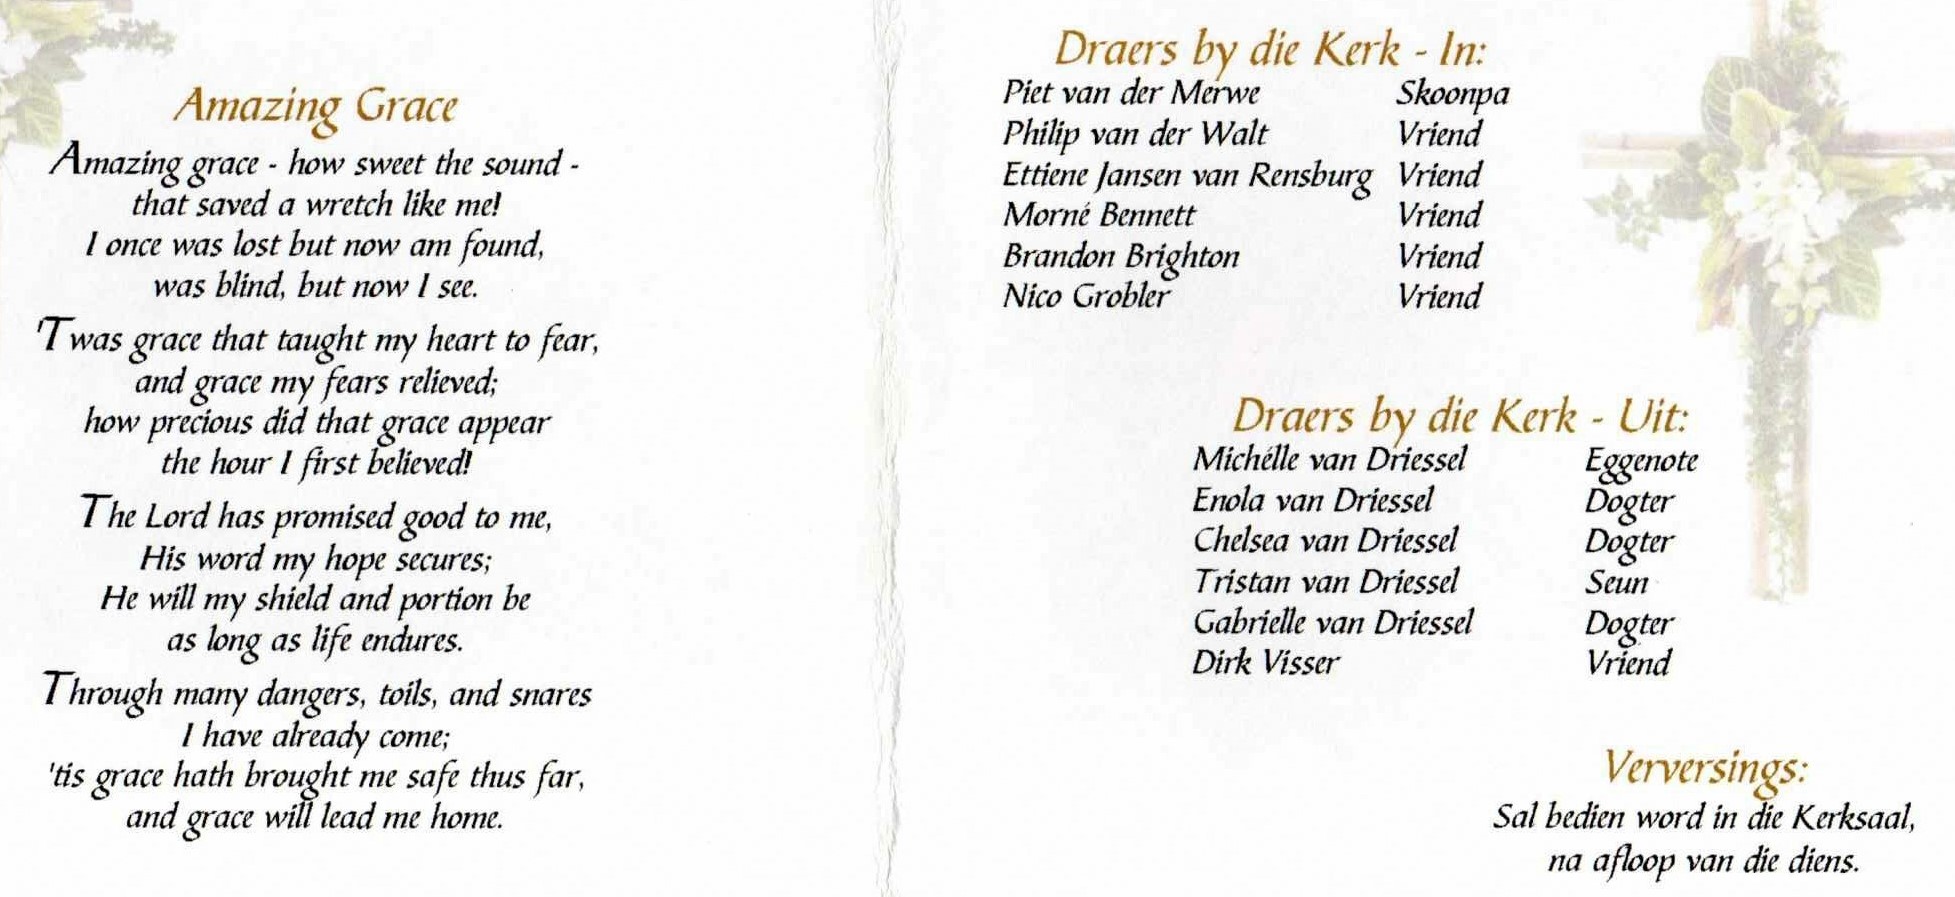 Amazing Grace
Amazing grace - how sweet the sound -
that saved a wretch like me!
I once was lost but now am found,
was blind, but now I see.
'Twas grace that taught my heart to fear,
and grace my fears relieved;
how precious did that grace appear
the hour I first believed!
The Lord has promised good to me,
His word my hope secures;
He will my shield and portion be
as long as life endures.
Through many dangers, toils, and snares
I have already come;
'tis grace hath brought me safe thus far,
and grace will lead me home.
Draers by die Kerk - In:
Piet van der Merwe Skoonpa
Philip van der Walt Vriend
Ettiene Jansen van Rensburg Vriend
Morné Bennett Vriend
Brandon Brighton Vriend
Nico Grobler Vriend
Draers by die Kerk - Uit:
Michélle van Driessel Eggenote
Enola van Driessel Dogter
Chelsea van Driessel Dogter
Tristan van Driessel Seun
Gabrielle van Driessel Dogter
Dirk Visser Vriend
Verversings:
Sal bedien word in die Kerksaal,
na afloop van die diens.